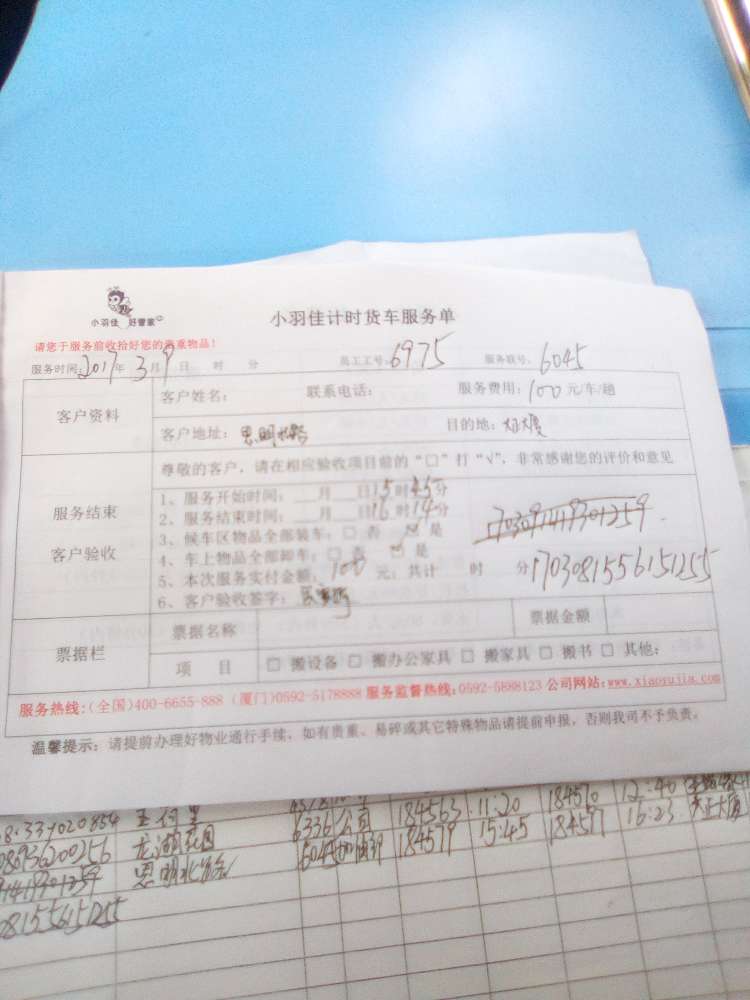 小羽佳 好管家
小羽佳计时货车服务单
请您于服务前收拾好您的贵重物品!
服务时间: 2017年 3月9日 时 分 员工工号: 6975 服务联号: 6045
客户资料
客户姓名: 联系电话: 服务费用: 100元/车/趟
客户地址: 思明北路 目的地: 大厦
服务结束
客户验收
尊敬的客户,请在相应验收项目前的“□”打“√”,非常感谢您的评价和意见
1、服务开始时间: 月 日15时45分
2、服务结束时间: 月 日16时14分
3、候车区物品全部装车: □ 否 ☑ 是
4、车上物品全部卸车: □ 否 ☑ 是
5、本次服务实付金额: 100 元; 共计 时 分
6、客户验收签字:
1703091419301259
1703081556151255
票据栏
票据名称 票据金额
项 目 □ 搬设备 □ 搬办公家具 □ 搬家具 □ 搬书 □ 其他:
服务热线:(全国)400-6655-888 (厦门)0592-5178888 服务监督热线:0592-5888123 公司网站:www.xiaoyujia.com
温馨提示: 请提前办理好物业通行手续, 如有贵重、易碎或其它特殊物品请提前申报, 否则我司不予负责。
184563 11:20 184570 12:40
龙湖花园 6336 184579 15:45 184597 16:23
思明北路 6045
081556151255